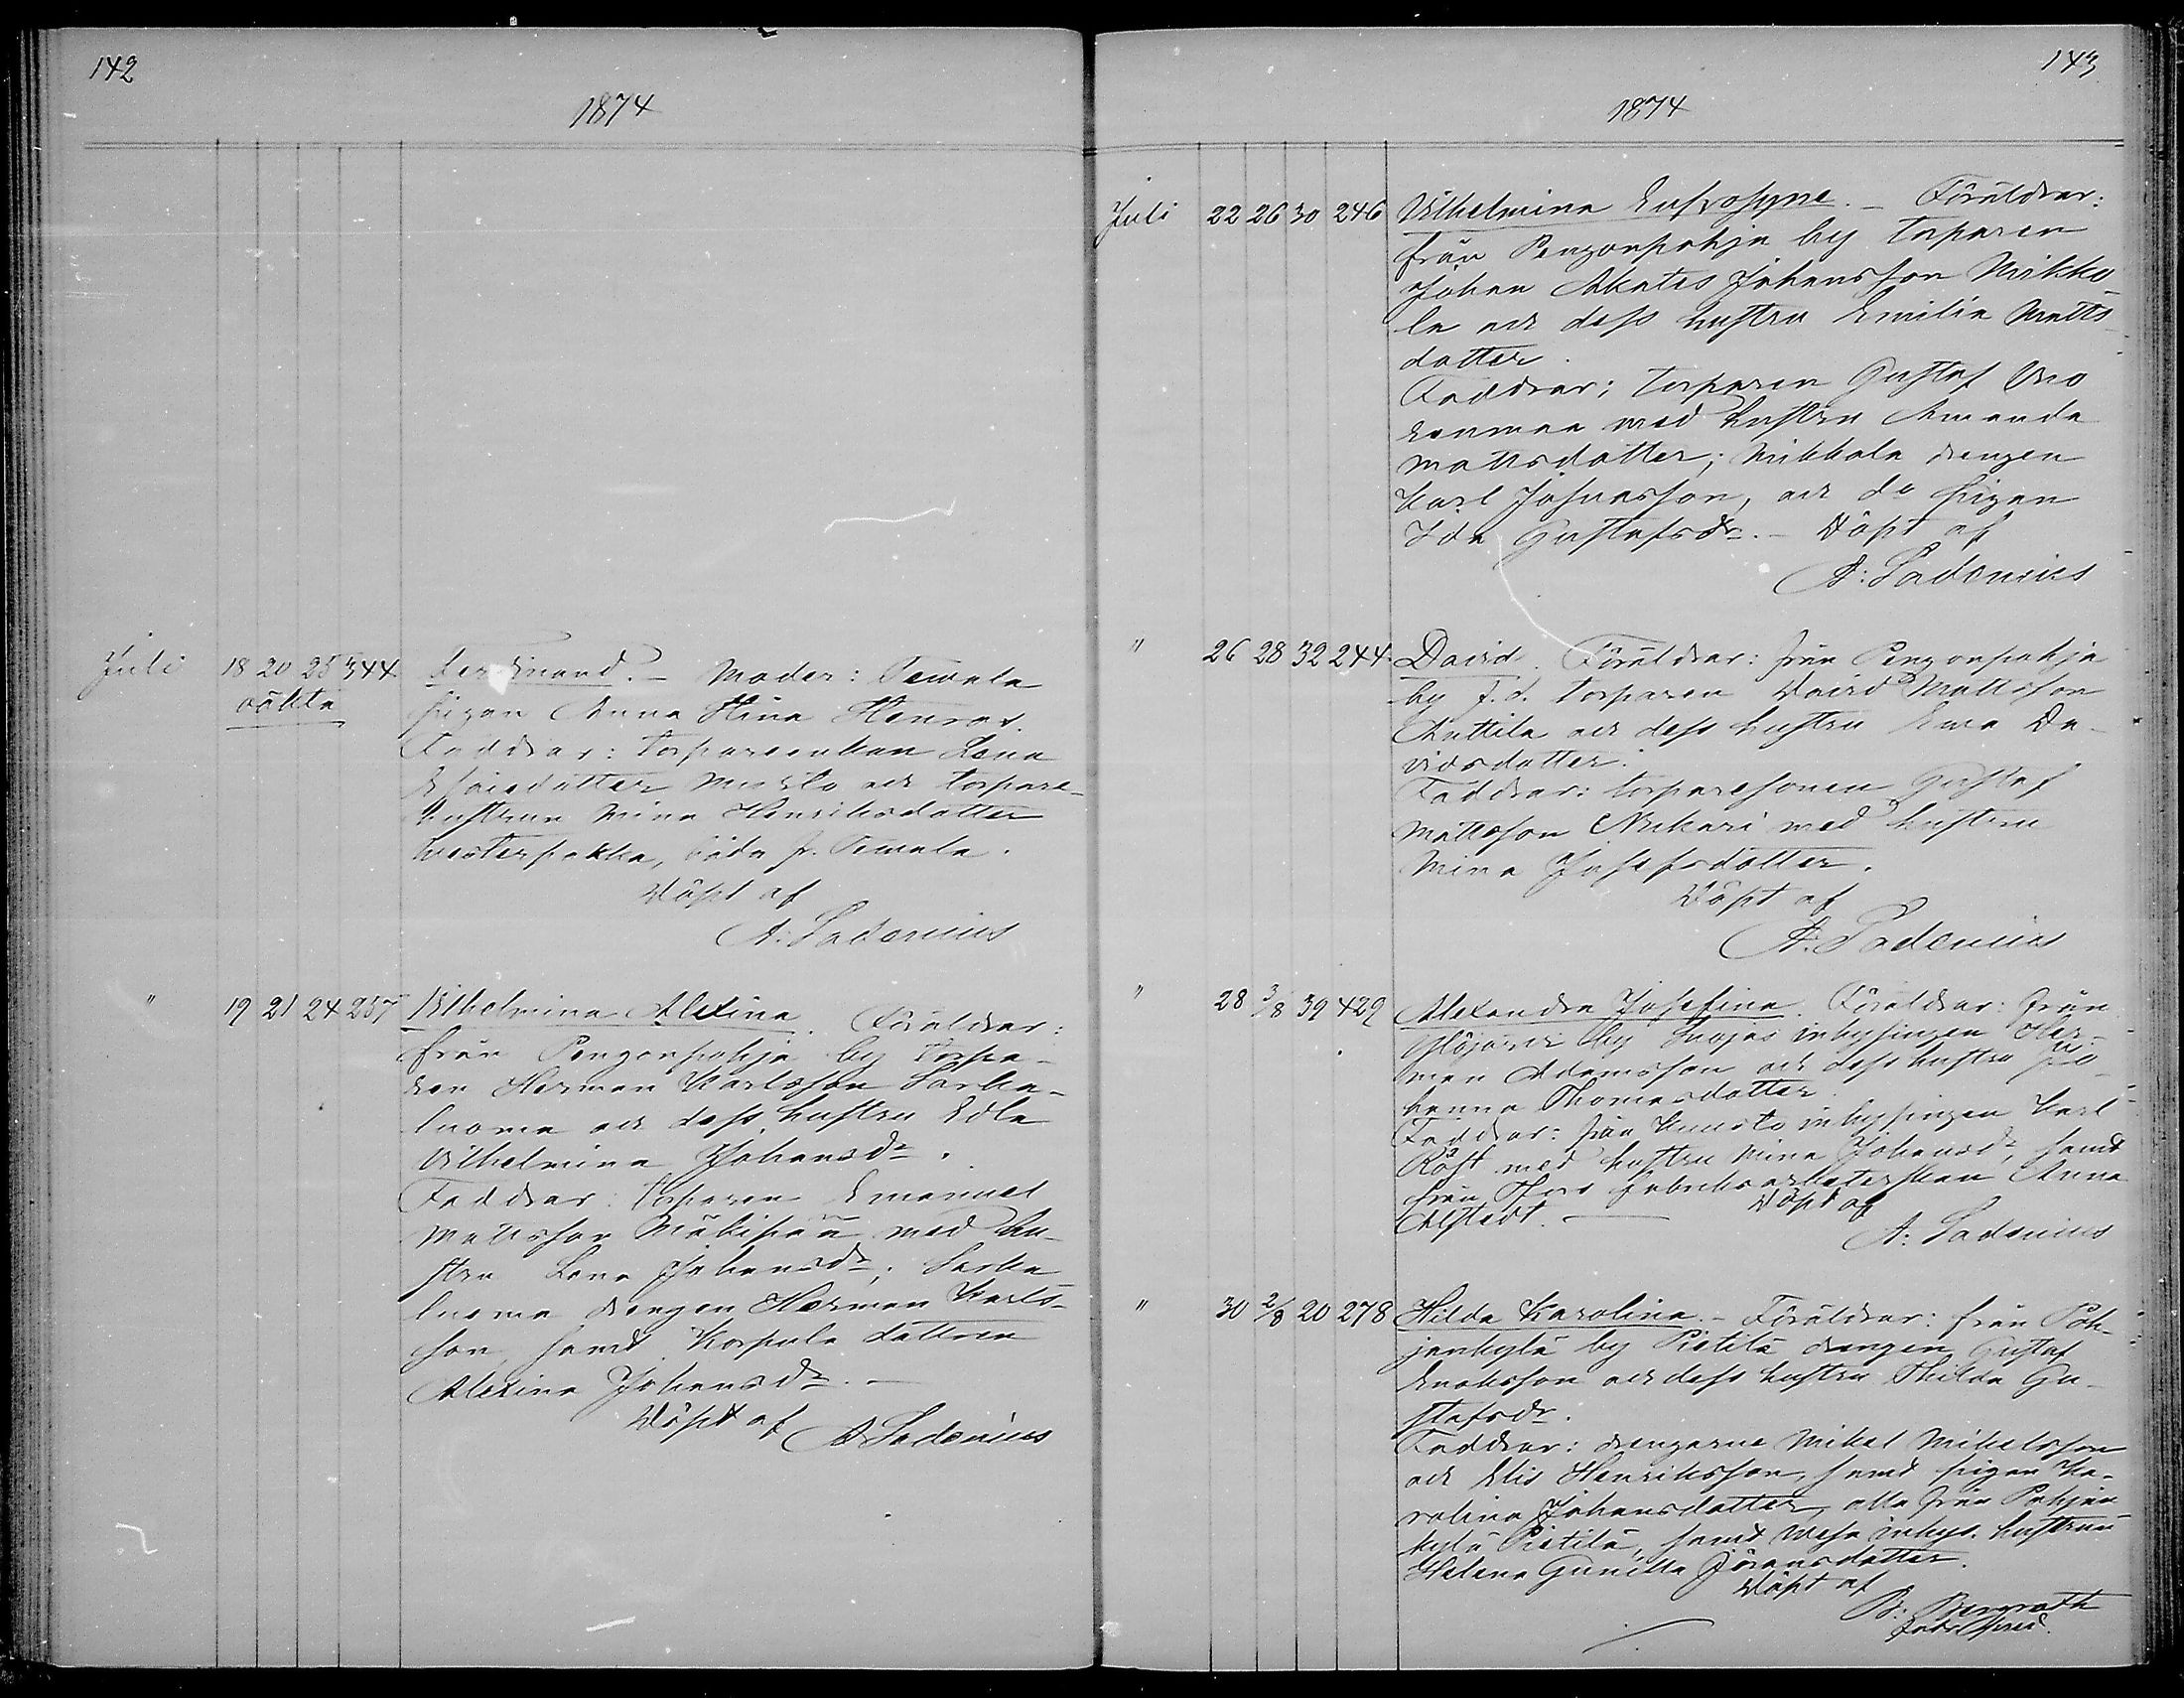 142
1874
Juli 18 20 25 344 Ferdinand. - Moder: Temala
oäkta pigan Anna Stina Henrsd.
Faddrar: torpareenkan Lena
Esaiedotter och torpare-
hustrun Mina Henriksdotter
Westerpakka, båda fr. Temala.
Döpt af
A: Ladenius
" 19 21 24 257 Vilhelmina Alexina. Föräldrar:
från Pengonpohja by torpa-
ren Herman Karlsson Sarka-
luoma och dess hustru Edla
Vilhelmina Johansdr.
Faddrar: torparen Emanuel
Mattsson Mäkipää med hu-
stru Lena Johansdr; Sarka
luoma drengen Herman Karls-
son, samt Korpula dottren
Alexina Johansdr. -
Döpt af A Ladenius
143
1874
Juli 22 26 30 246 Vilhelmina Eufrosyne. - Föräldrar:
från Pengonpohja by torparen
Johan Akates Johansson Mikko-
la och dess hustru Emilia Matts-
dotter.
Faddrar; torparen Gustaf Uro
med hustru Amanda
Mattsdotter; Mikkola drengen
Karl Johansson, och do pigan
Ida Gustafsdr. - Döpt af
A: Ladenius
" 26 28 32 244 David. Föräldrar: från Pengonpohja
by f.d. torparen David Mattsson
Anttila och dess hustru Ewa Da-
vidsdotter.
Faddrar: torparesonen Gustaf
Mattsson Nukari med hustru
Mina Josefsdotter.
Döpt af
A. Ladenius
" 28 3/8 39 429 Alexandra Josefina. Föräldrar: från
by inhysingen Her-
man Adamsson och dess hustru Jo-
hanna Thomasdotter.
Faddrar: från inhysingen Karl
Röst med hustru Mina Johansdr, samt
från Fors fabriksarbeterskan Anna
Ahlstedt. - Döpt af
A: Ladenius
" 30 2/8 20 278 Hilda Karolina. - Föräldrar: från Poh-
jankylä by Pietilä drengen Gustaf
Enoksson och dess hustru Thilda Gu-
stafsdr.
Faddrar: drengarne Mikel Mikelsson
och Elis Henriksson, samt pigan Ka-
rolina Johansdotter, alla från Pohjan-
kylä Pietilä, samt inhys. hustrun
Helena Gunilla Göransdotter.
Döpt af
B: